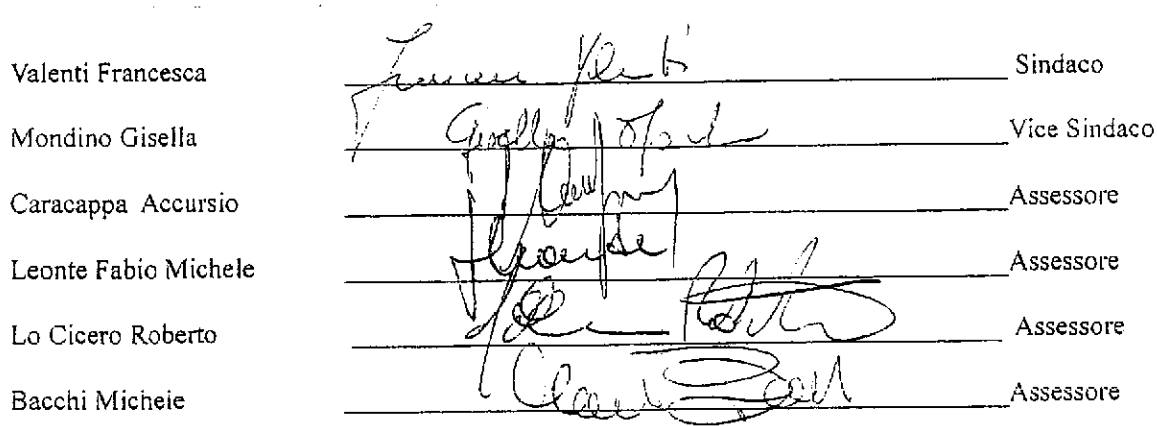 Valenti Francesca Francesca Valenti Sindaco
Mondino Gisella Gisella Mondino Vice Sindaco
Caracappa Accursio Assessore
Leonte Fabio Michele Assessore
Lo Cicero Roberto Assessore
Bacchi Micheie Assessore